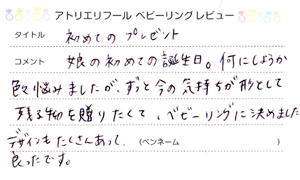 アトリエリフール ベビーリングレビュー
タイトル 初めてのプレゼント
コメント 娘の初めての誕生日。何にしようか
色々悩みましたが、ずっと今の気持ちが形として
残る物を贈りたくて、ベビーリングに決めました
デザインもたくさんあって、(ペンネーム )
良ったです。